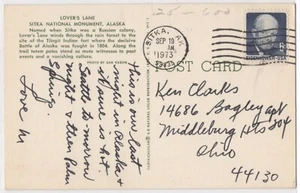 LOVER'S LANE
SITKA NATIONAL MONUMENT, ALASKA
Named when Sitka was a Russian colony,
Lover's Lane winds through the rain forest to the
site of the Tlingit Indian fort where the decisive
Battle of Alaska was fought in 1804. Along the
trail totem poles stand as mute witnesses to past
events and a vanishing culture.
This is our last
night in Alaska &
at home in A.
Seattle to morrow
night & then Palm
Springs.
Love M
SITKA, AK
SEP 19
AM
1973
POST CARD
Ken Clarks
14686 Bagley apt
Middleburg Hts 304
Ohio
44130